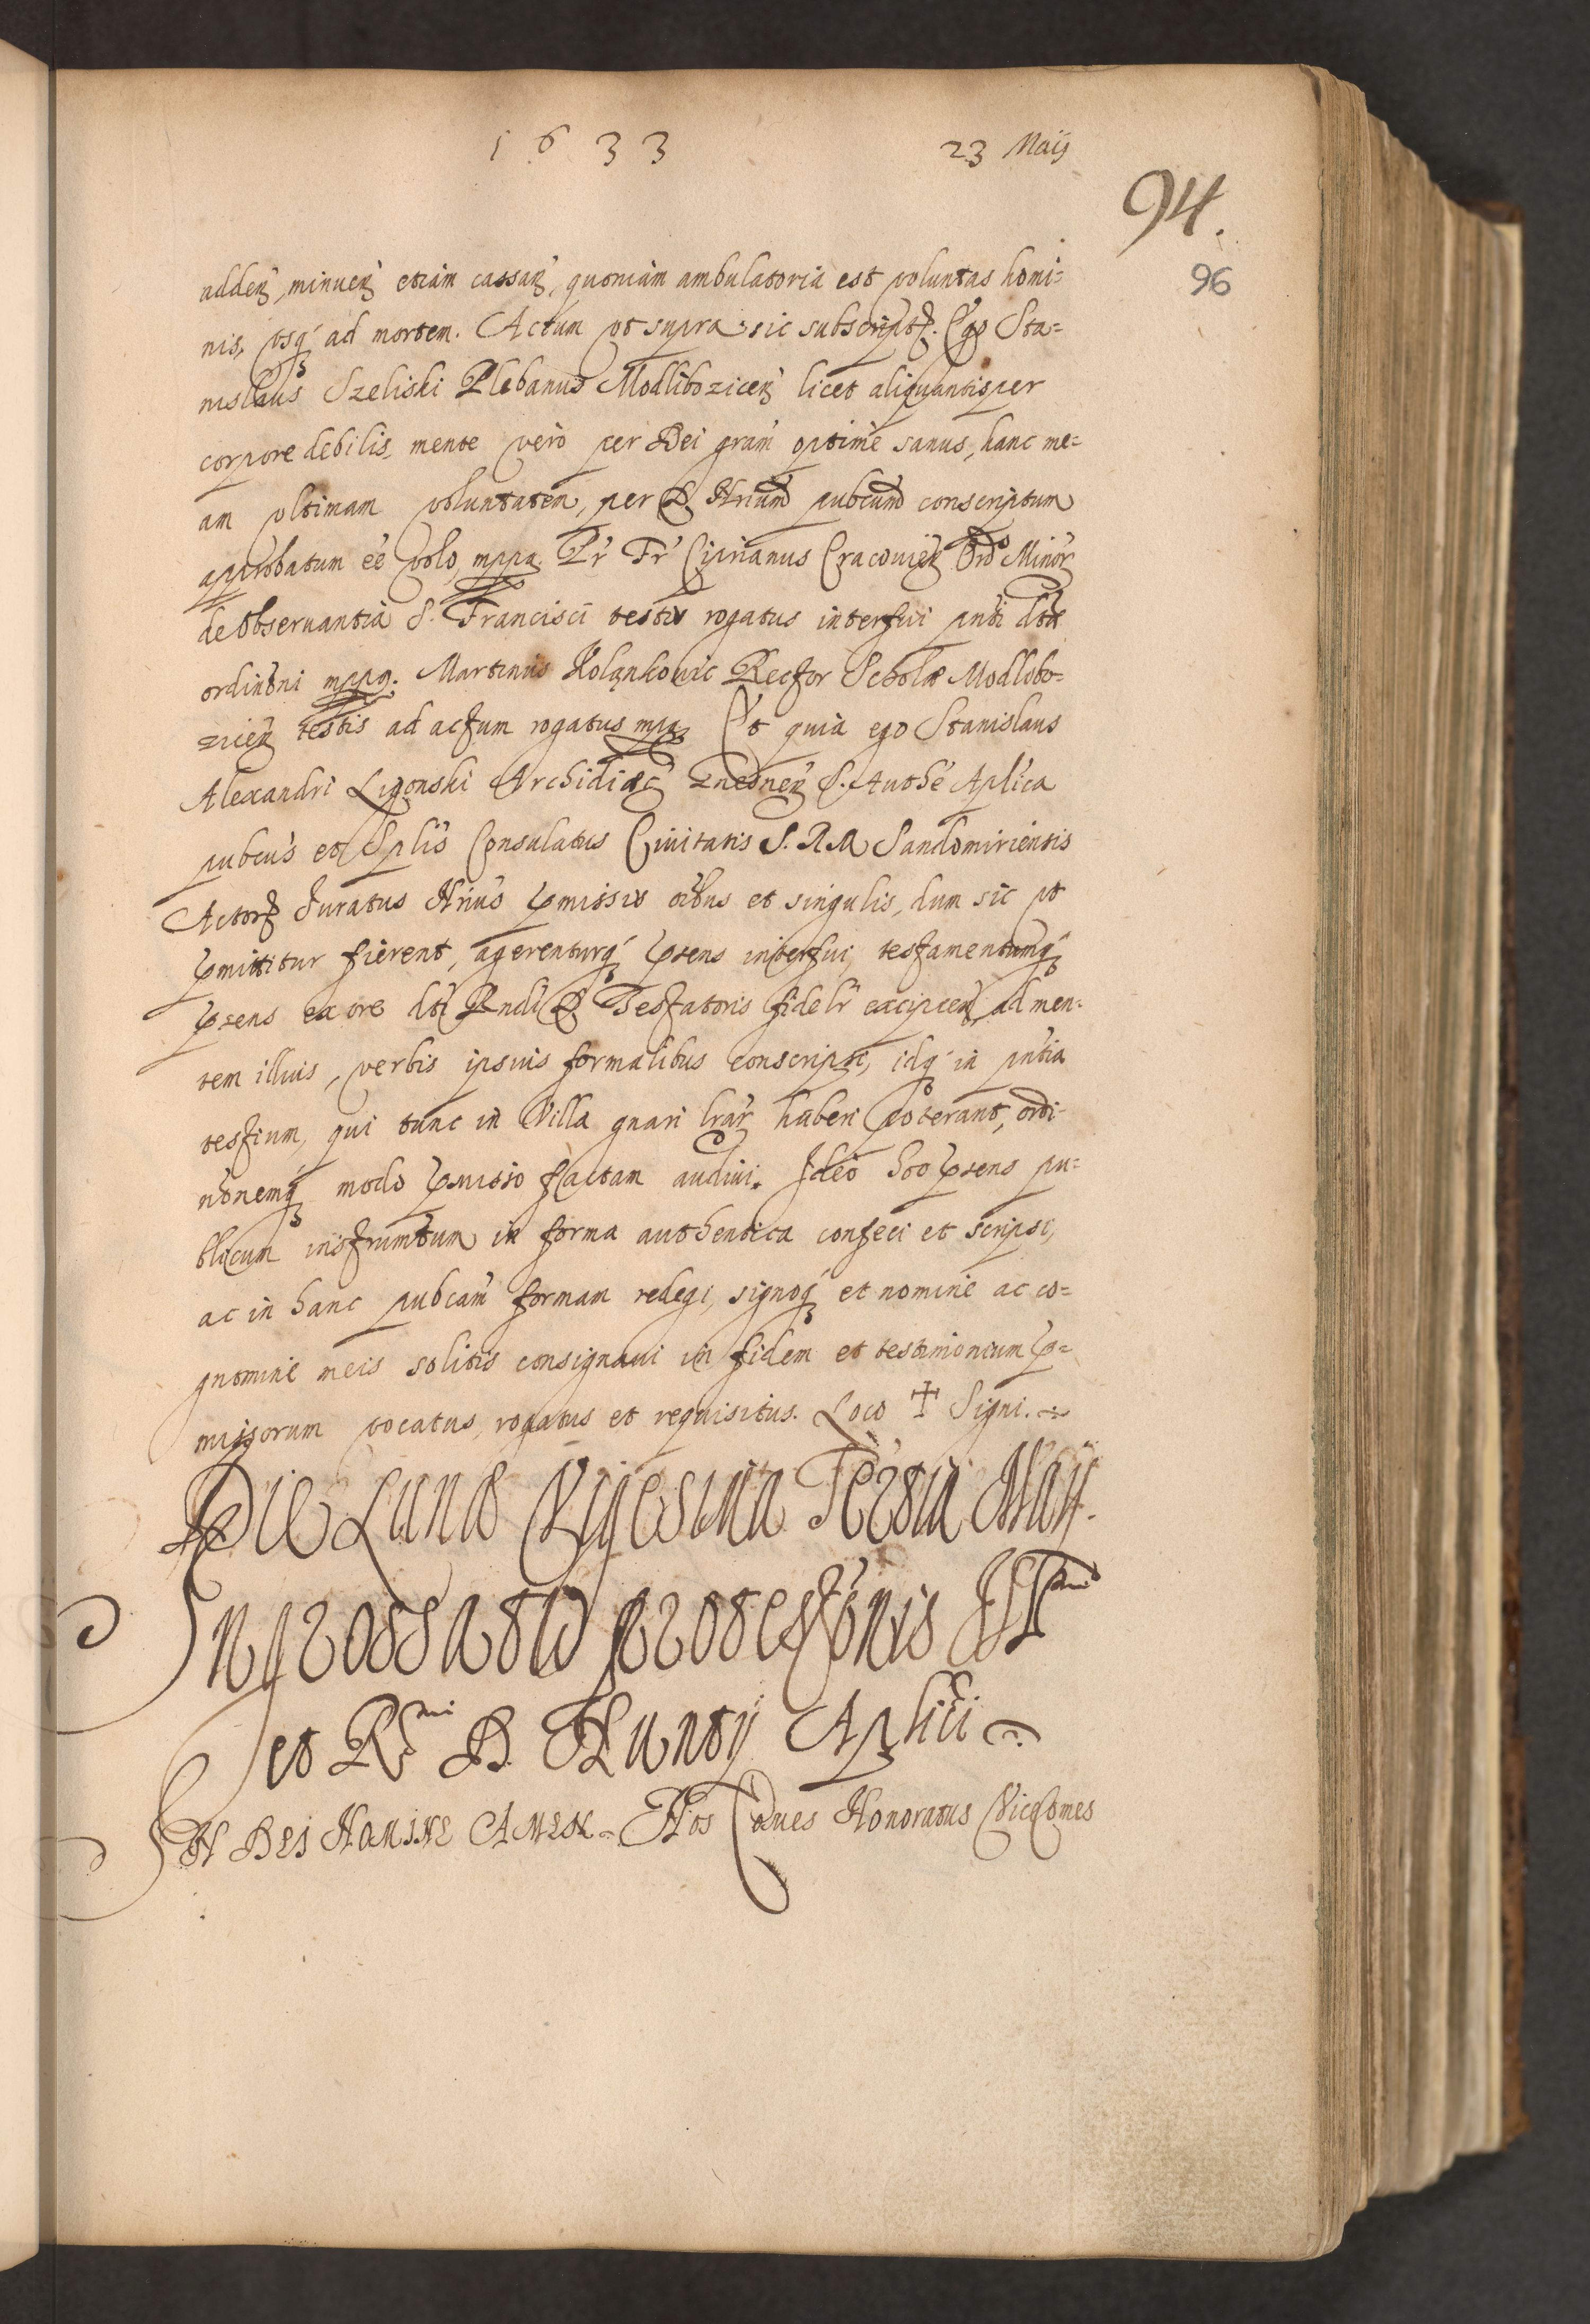 1633 23 Maij
94.
96
adden, minuen etiam cassan, quoniam ambulatoria est voluntas homi=
nis, vsq ad mortem. Actum vt supra sic subscript. Ego Sta=
nislaus Szeliski Plebanus Modlibozicen licet aliquantisper
corpore debilis, mente vero per Dei gram optime sanus, hanc me=
am vltimam voluntatem, per D. Nrium pubcum conscriptum
approbatum ee volo, mppa. Pr Fr Ciprianus Cracouien Ord Minor
de obseruantia S. Francisci testis rogatus interfui pnti dta
ordintni mppa. Martinus Kolankouic Rector Scholæ Modlibo=
zicen testis ad actum rogatus mpp Et quia ego Stanislaus
Alexandri Ligonski Archidiæc Gnesnen S. Authe Aplica
pubcus et Splis Consulatus Ciuitatis S. R M Sandomiriensis
Actor Juratus Nrius pmissis oibus et singulis, dum sic vt
pmittitur fierent, agerenturq psens interfui, testamentumq
psens ex ore dti Rndi D. Testatoris fideli excipien ad men=
tem illius, verbis ipsius formalibus conscripsi, idq in pntia
testium, qui tunc in Villa gnari lrar haberi poterant, ordi=
ntnemq modo pmisso factam audiui. Ideo hoc psens pu=
blicum instrumtum in forma authentica confeci et scripsi,
ac in hanc pubcam formam redegi, signoq et nomine ac co=
gnomine meis solitis consignaui in fidem et testimonium p=
missorum vocatus, rogatus et requisitus. Loco ✝ Signi.
Die Lunæ Vigesima Tertia Maij.
Ingrossatio protestonis Ill
et R mi D. Nuntij Aplici
IN DEI NOMINE AMEN. Nos Honoratus Vicecomes